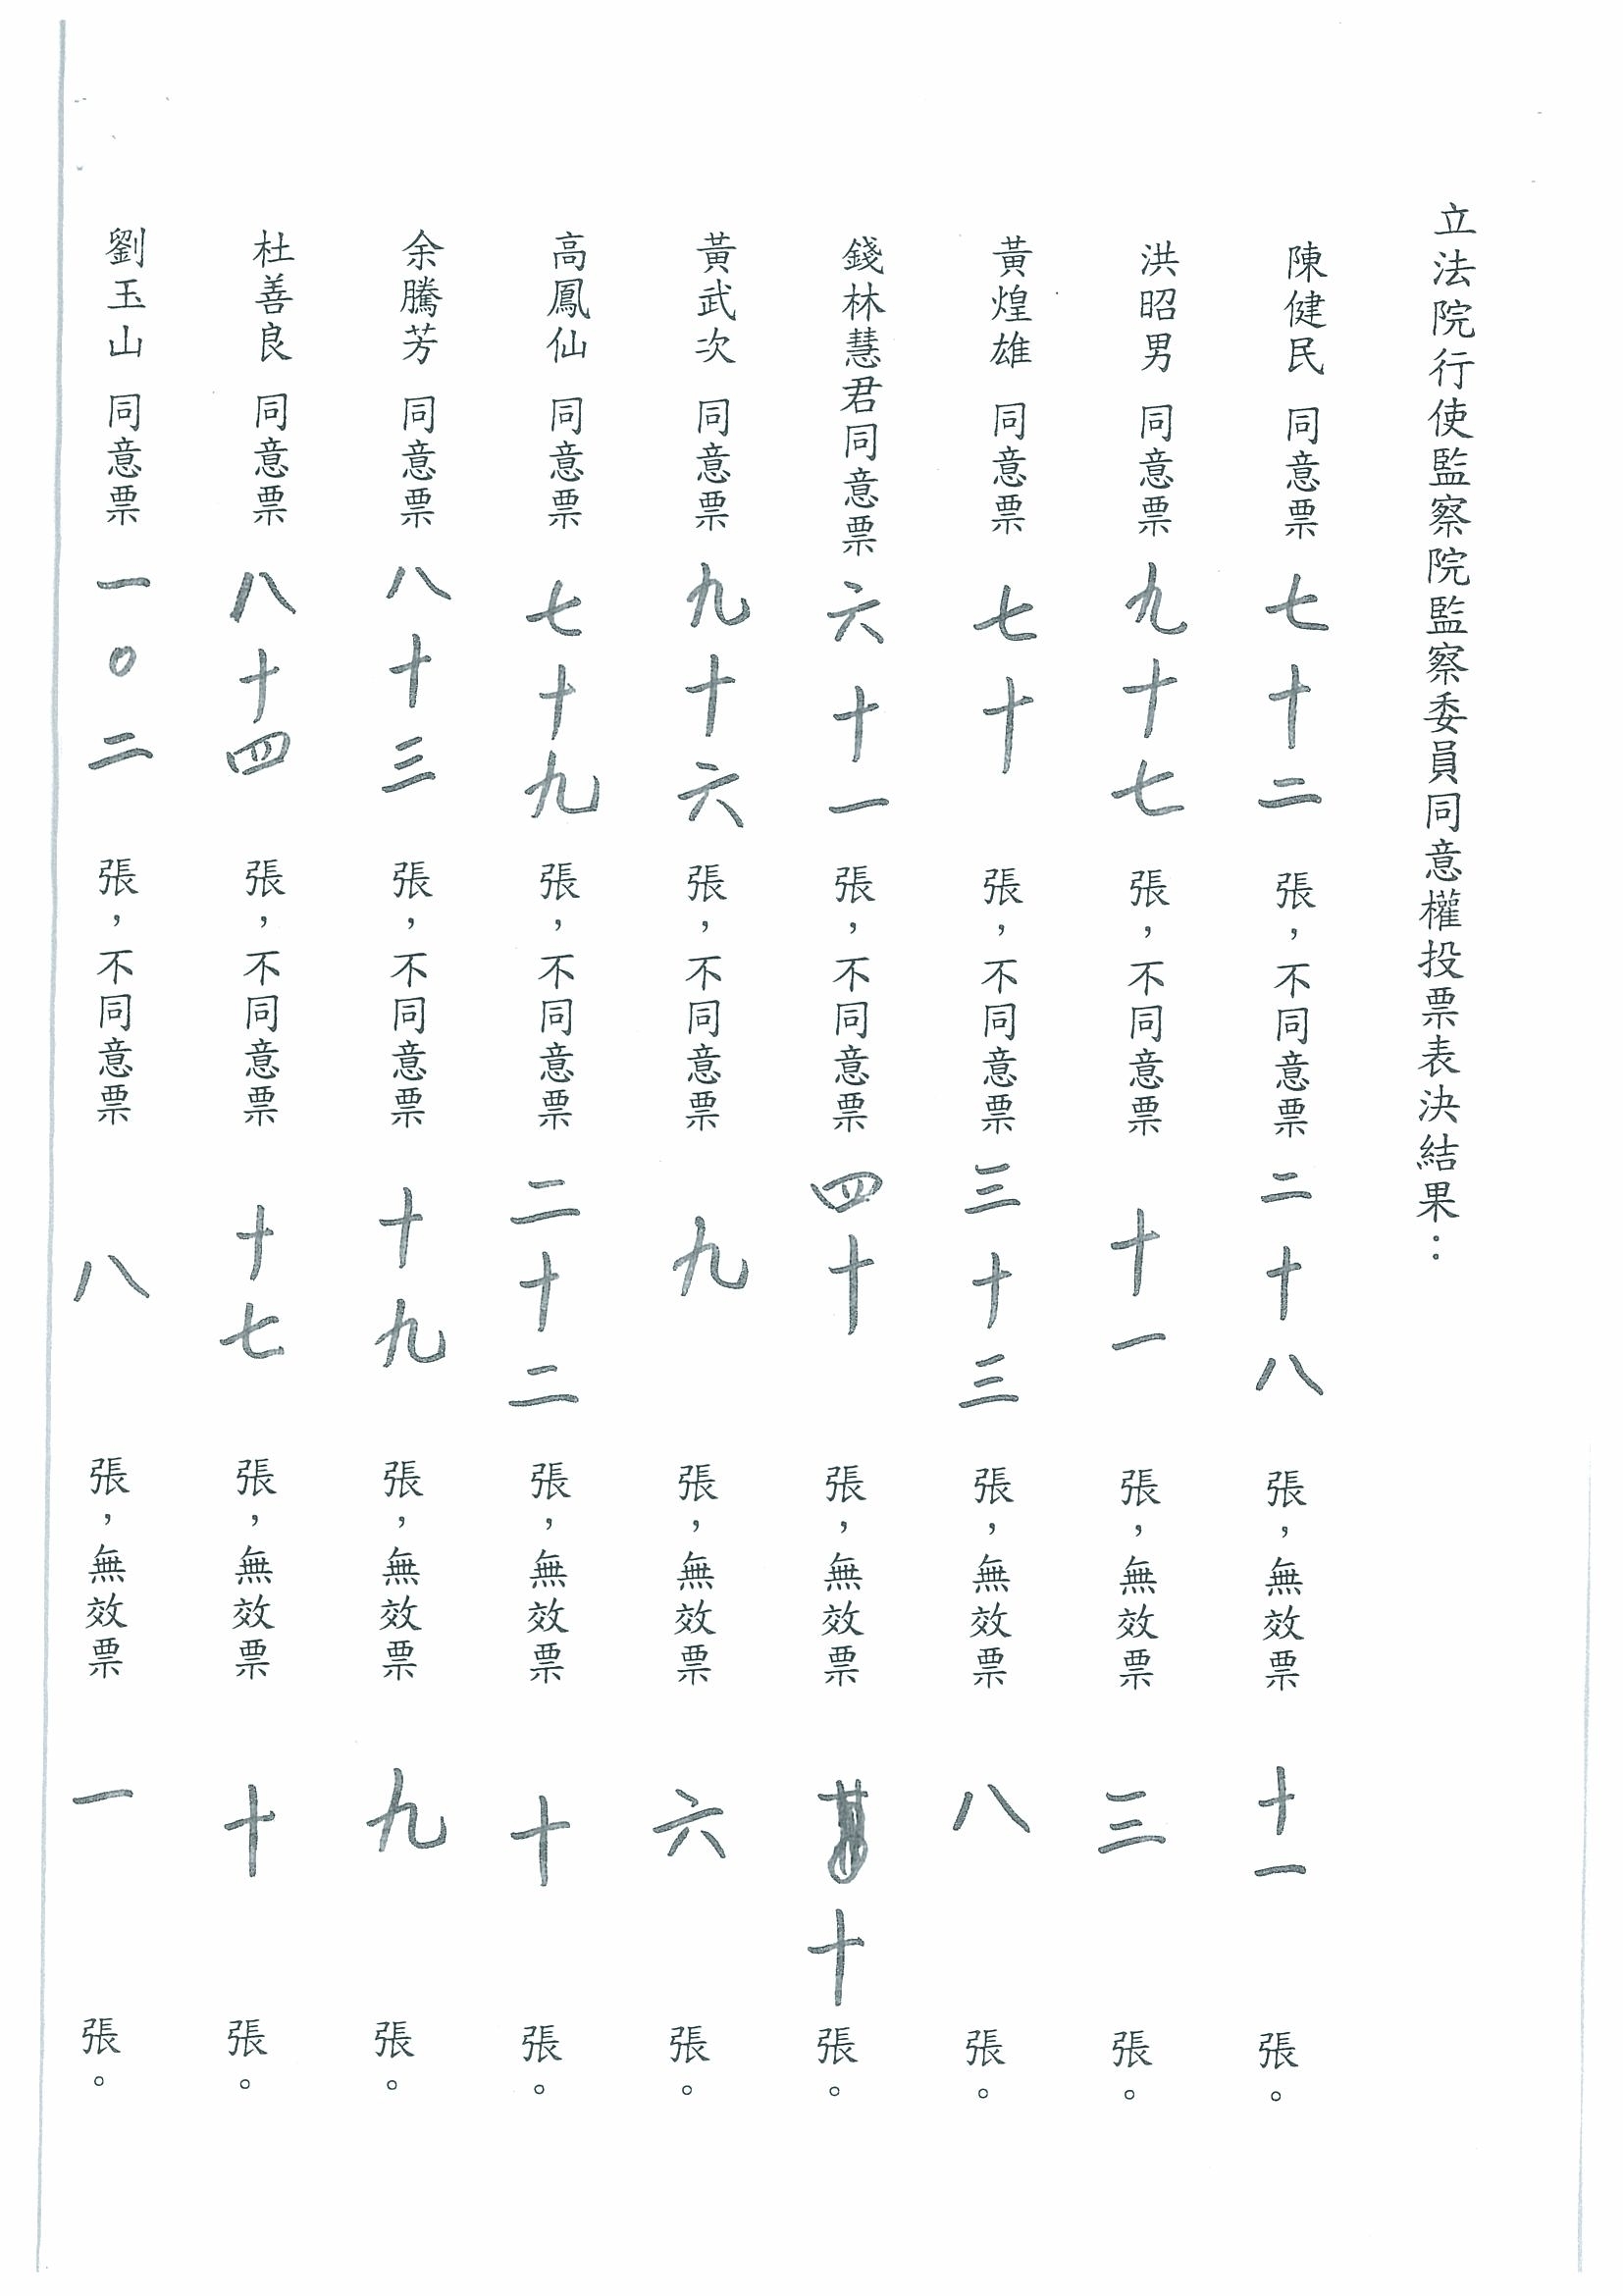 立法院行使監察院監察委員同意權投票表決結果：
陳健民 同意票 七十二 張，不同意票 二十八 張，無效票 十一 張。
洪昭男 同意票 九十七 張，不同意票 十一 張，無效票 三 張。
黃煌雄 同意票 七十 張，不同意票 三十三 張，無效票 八 張。
錢林慧君同意票 六十一 張，不同意票 四十 張，無效票 十 張。
黃武次 同意票 九十六 張，不同意票 九 張，無效票 六 張。
高鳳仙 同意票 七十九 張，不同意票 二十二 張，無效票 十 張。
余騰芳 同意票 八十三 張，不同意票 十九 張，無效票 九 張。
杜善良 同意票 八十四 張，不同意票 十七 張，無效票 十 張。
劉玉山 同意票 一〇二 張，不同意票 八 張，無效票 一 張。